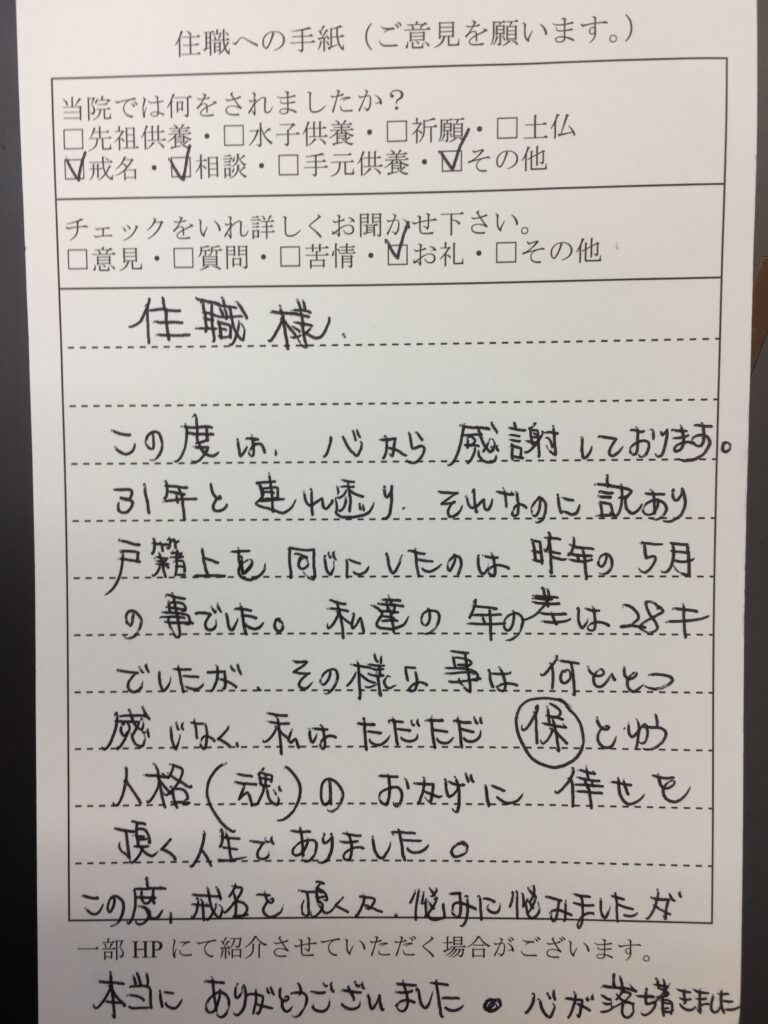 住職への手紙（ご意見を願います。）
当院では何をされましたか？
□先祖供養・□水子供養・□祈願・□土仏
☑戒名・☑相談・□手元供養・☑その他
チェックをいれ詳しくお聞かせ下さい。
□意見・□質問・□苦情・☑お礼・□その他
住職様.
この度は、心から感謝しております。
31年と連れ添り、それなのに訳あり
戸籍上を同じにしたのは昨年の5月
の事でした。私達の年の差は28才
でしたが、その様な事は何ひとつ
感じなく、私はただただ 保 とゆう
人格(魂)のおかげに倖せを
頂く人生でありました。
この度、戒名を頂く又、悩みに悩みましたが
一部HPにて紹介させていただく場合がございます。
本当にありがとうございました。心が落ち着きました